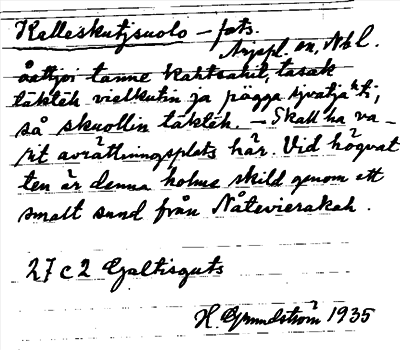 Kalleskutjsuolo – fots.
Arpspl. en, Nbl.
åättjoi tanne kahtsahit, tasak
täktēh vielkutin ja pägga tjvätja^h ti,
så skuollin täktēh. – Skall ha va-
rit avrättningsplats här. Vid högvat
ten är denna holme skild genom ett
smalt sund från Nåtevierakah.
27 c 2 Galtisguts
H. Grundström 1935